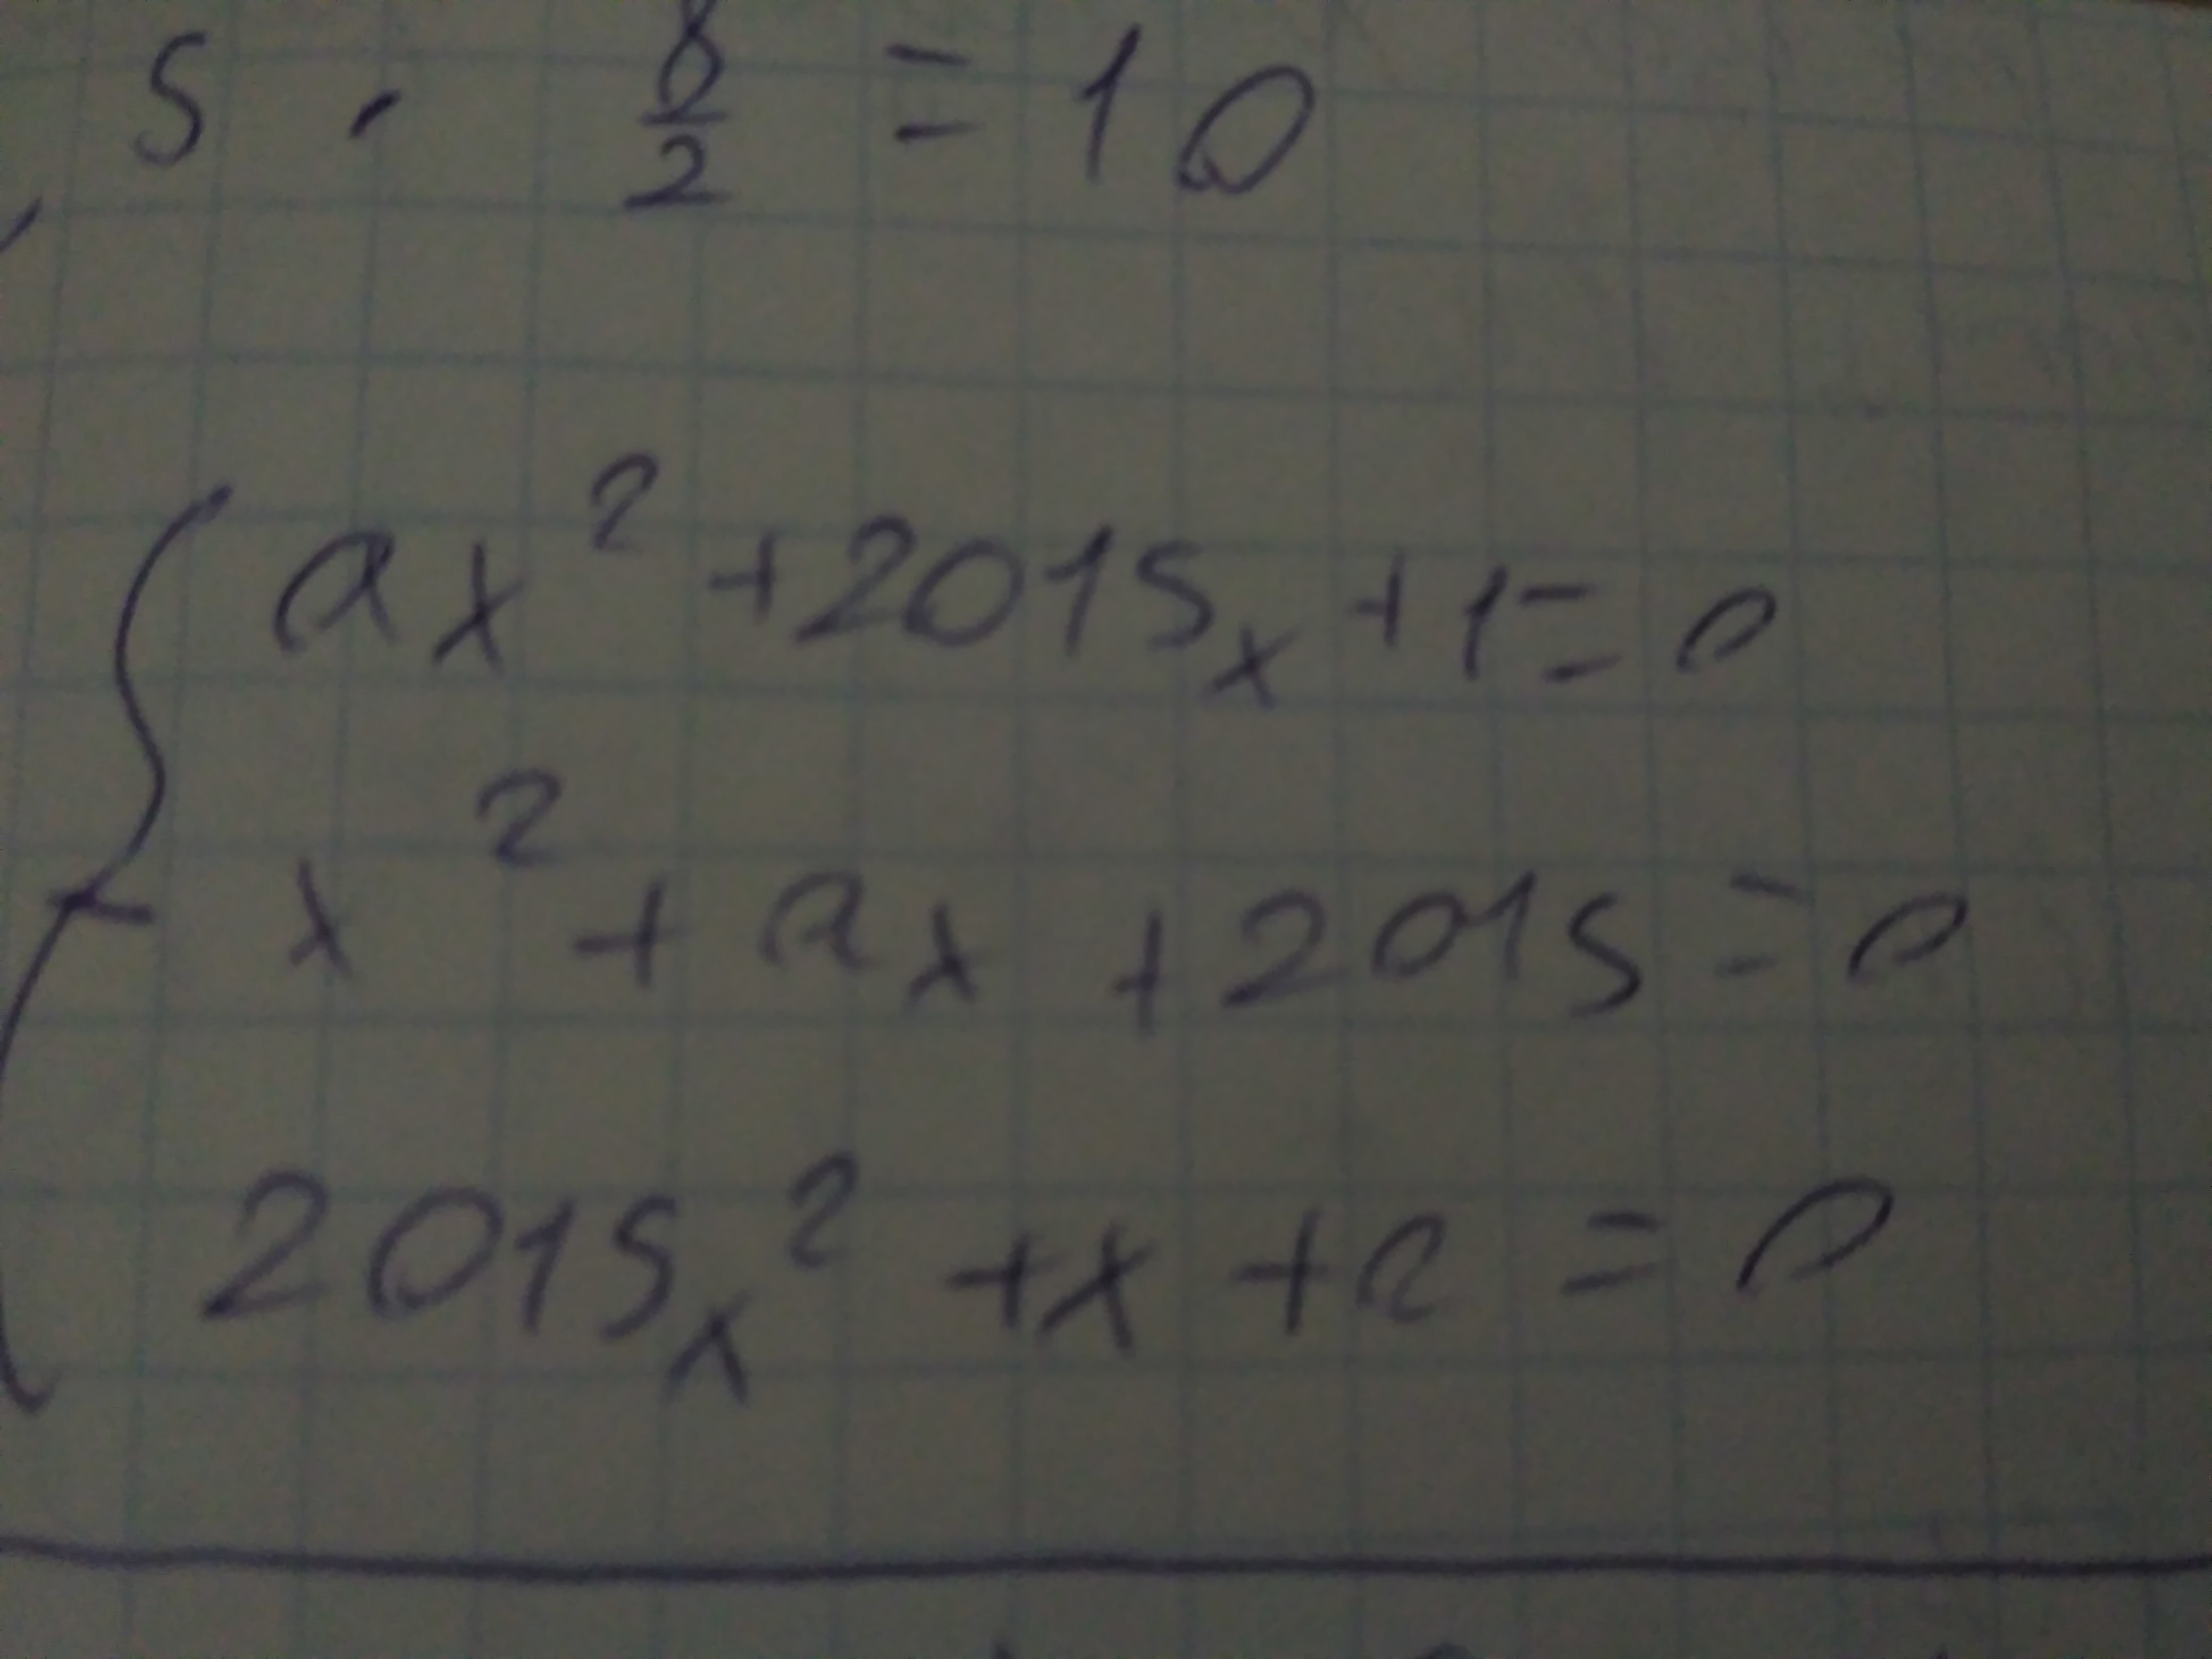 5 · 8/2 = 10
ax² + 2015x + 1 = 0
x² + ax + 2015 = 0
2015x² + x + a = 0